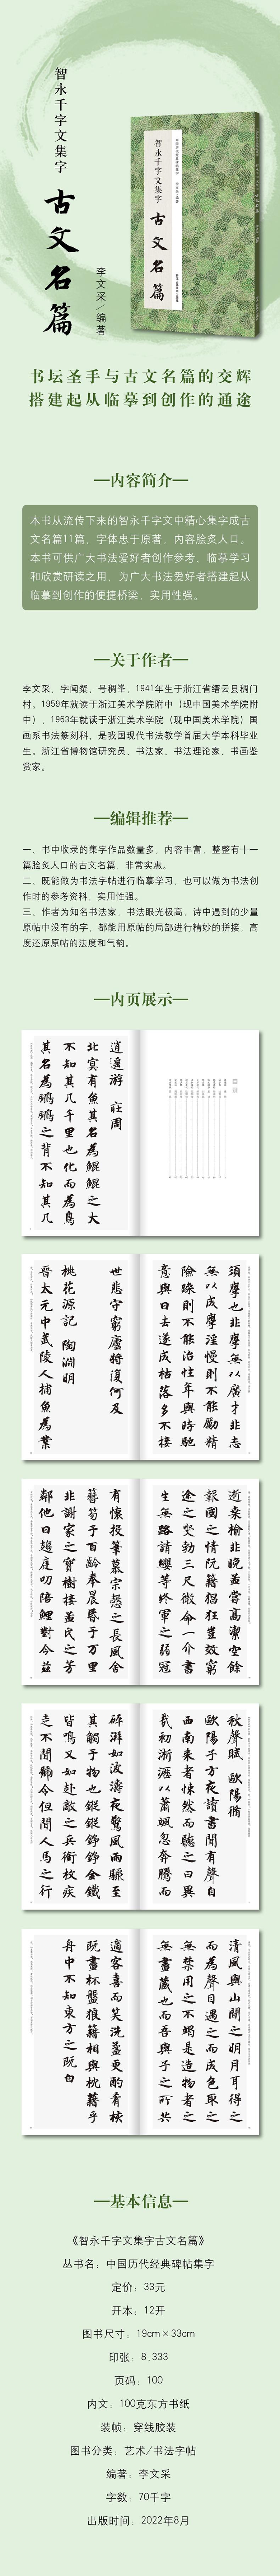 智永千字文集字
古文名篇
李文采/编著
智永千字文集字
古文名篇
书坛圣手与古文名篇的交辉
搭建起从临摹到创作的通途
内容简介
本书从流传下来的智永千字文中精心集字成古
文名篇11篇，字体忠于原著，内容脍炙人口。
本书可供广大书法爱好者创作参考，临摹学习
和欣赏研读之用，为广大书法爱好者搭建起从
临摹到创作的便捷桥梁，实用性强。
关于作者
李文采，字闻粲，号稠峯，1941年生于浙江省缙云县稠门
村。1959年就读于浙江美术学院附中（现中国美术学院附
中），1963年就读于浙江美术学院（现中国美术学院）国
画系书法篆刻科，是我国现代书法教学首届大学本科毕业
生。浙江省博物馆研究员、书法家、书法理论家、书画鉴
赏家。
编辑推荐
一、书中收录的集字作品数量多，内容丰富，整整有十一
篇脍炙人口的古文名篇，非常实惠。
二、既能做为书法字帖进行临摹学习，也可以做为书法创
作时的参考资料，实用性强。
三、作者为知名书法家，书法眼光极高，诗中遇到的少量
原帖中没有的字，都能用原帖的局部进行精妙的拼接，高
度还原原帖的法度和气韵。
内页展示
目录
逍遥游 莊周
北冥有魚其名為鯤鯤之大
不知其几千里也化而為鳥
其名為鵬鵬之背不知其几
須學也非學無以廣才非志
無以成學淫慢則不能勵精
險躁則不能治性年與時馳
意與日去遂成枯落多不接
世悲守窮廬將復何及
桃花源記 陶淵明
晉太元中武陵人捕魚為業
逝桑榆非晚孟嘗高潔空餘
報國之情阮籍猖狂豈效窮
途之哭勃三尺微命一介書
生無路請纓等終軍之弱冠
有懷投筆慕宗愨之長風舍
簪笏于百齡奉晨昏于万里
非謝家之寶樹接孟氏之芳
鄰他日趨庭叨陪鯉對今兹
秋聲賦 歐陽脩
歐陽子方夜讀書聞有聲自
西南来者悚然而聽之曰異
哉初淅瀝以蕭颯忽奔騰而
砰湃如波濤夜驚風雨驟至
其觸于物也鏦鏦錚錚金鐵
皆鳴又如赴敵之兵銜枚疾
走不聞號令但聞人馬之行
清風與山間之明月耳得之
而為聲目遇之而成色取之
無禁用之不竭是造物者之
無盡藏也而吾與子之所共
適客喜而笑洗盞更酌肴核
既盡杯盤狼籍相與枕藉乎
舟中不知東方之既白
基本信息
《智永千字文集字古文名篇》
丛书名：中国历代经典碑帖集字
定价：33元
开本：12开
图书尺寸：19cm×33cm
印张：8.333
页码：100
内文：100克东方书纸
装帧：穿线胶装
图书分类：艺术/书法字帖
编著：李文采
字数：70千字
出版时间：2022年8月